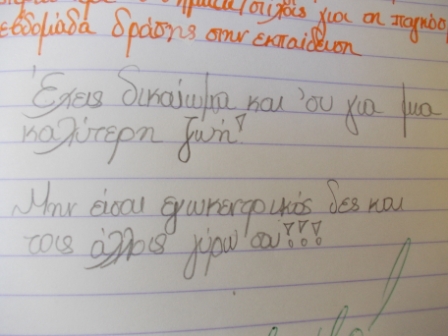 για τη παγκόσ
εβδομάδα δράσης στην εκπαίδευση
Έχεις δικαίωμα και 'συ για μια
καλύτερη ζωή!
Μην είσαι εγωκεντρικός δες και
τους άλλους γύρω σου!!!